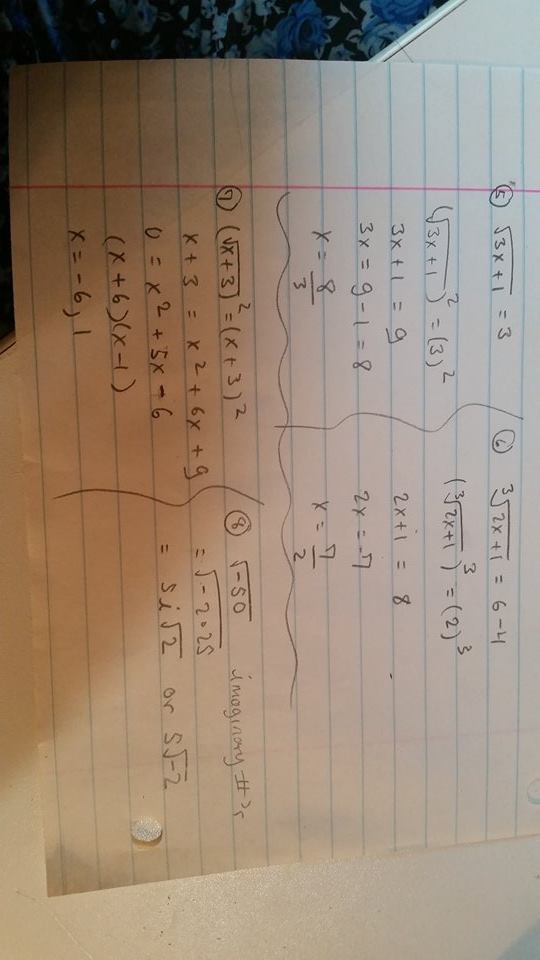 ⑤ √3x+1 = 3
(√3x+1)² = (3)²
3x+1 = 9
3x = 9-1 = 8
x = 8/3
⑥ ³√2x+1 = 6-4
(³√2x+1)³ = (2)³
2x+1 = 8
2x = 7
x = 7/2
⑦ (√x+3)² = (x+3)²
x+3 = x² + 6x + 9
0 = x² + 5x + 6
(x+6)(x-1)
x = -6, 1
⑧ √-50 imaginary #'s
= √-2•25
= 5i√2 or 5√-2